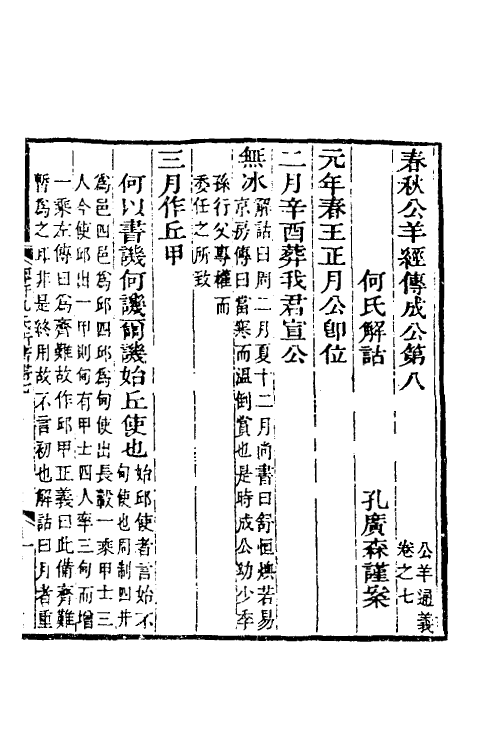 春秋公羊經傳成公第八
公羊通義
卷之七
何氏解詁
孔廣森謹案
元年春王正月公即位
二月辛酉葬我君宣公
無冰
解詁曰周二月夏十二月尚書曰舒恒燠若易
京房傳曰當寒而溫倒賞也是時成公幼少季
孫行父專權而
委任之所致
三月作丘甲
何以書譏何譏爾譏始丘使也
始邱使者言始不
甸使也周制四井
爲邑四邑爲邱四邱爲甸使出長轂一乘甲士三
人今使邱出一甲則甸有甲士四人率三甸而增
一乘左傳曰爲齊難故作邱甲正義曰此備齊難
暫爲之耳非是終用故不言初也解詁曰月者重